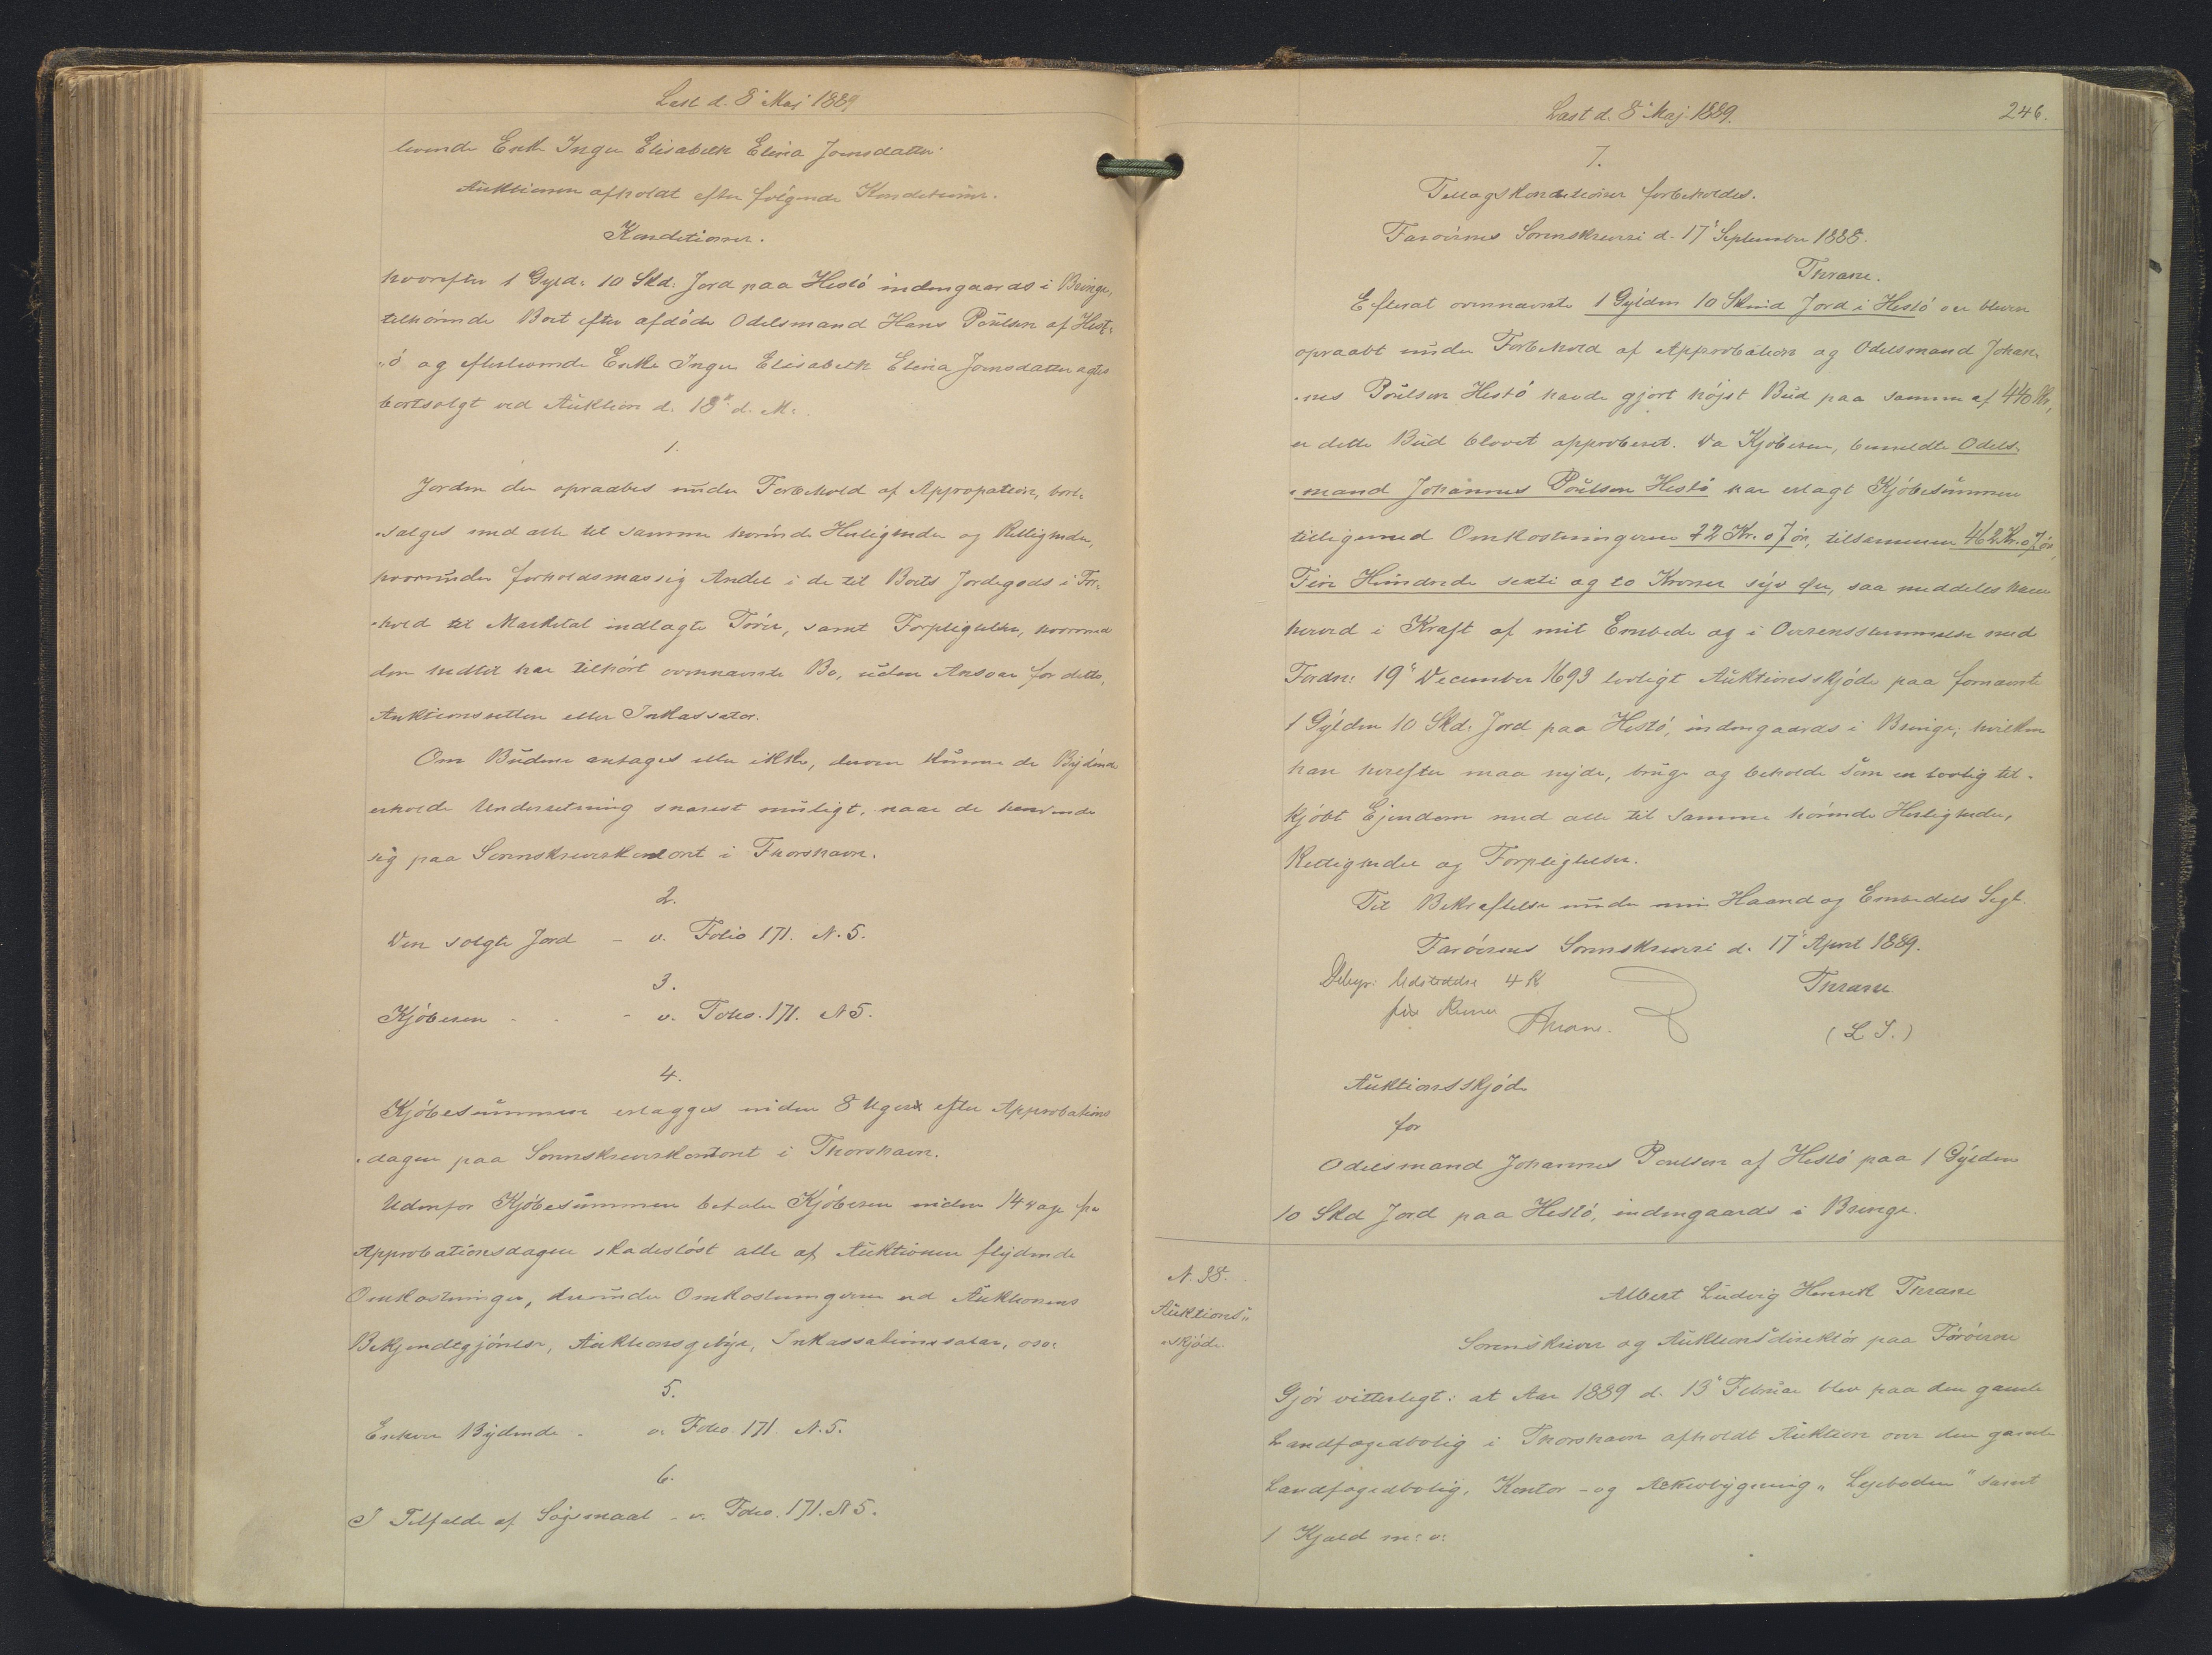 Læst d. 8' Maj 1889
levende Enke Inger Elisabeth Elena Joensdatter.
Auktionen afholdt efter følgende Konditioner.
Konditioner.
hvorefter 1 Gyld: 10 Skd: Jord paa Hestø indengaards i Bringe,
tilhørende Boet efter afdøde Odelsmand Hans Poulsen af Hest=
"ø og efterlevende Enke Inger Elisabeth Elena Joensdatter agtes
bortsolgt ved Auktion d. 18' d. M.
1.
Jorden der opraabes under Forbehold af Appropation, bort=
"sælges med alle til samme hørende Herligheder og Rettigheder,
hvorunder forholdsmæssig Andel i de til Boets Jordegods i For=
"hold til Marketal indlagte Tørv, samt Forpligtelser, hvormed
den hidtil har tilhørt ovennævnte Bo, uden Ansvar for dette,
Auktionsretten eller Inkassator.
Om Budene antages eller ikke, derom kunne de Bydende
erholde Underretning snarest muligt, naar de henvende
sig paa Sorenskriverkontoret i Thorshavn.
2.
Den solgte Jord - v. Folio 171. N. 5.
3.
Kjøberen - - - v. Folio. 171. N 5.
4.
Kjøbesummen erlægges inden 8 Uger efter Approbations
"dagen paa Sorenskriverkontoret i Thorshavn.
Udenfor Kjøbesummen betaler Kjøberen inden 14 Dage fra
Approbationsdagen skadesløst alle af Auktionen flydende
Omkostninger, derunder Omkostningerne ved Auktionens
Bekjendtgjørelse, Auktionsgebyr, Inkassationssalær, osv:
5.
Enhver Bydende - v. Folio 171. N. 5.
6.
I Tilfælde af Søgsmaal - v. Folio. 171. N 5.
Læst d. 8' Maj 1889.
246.
7.
Tillægskonditioner forbeholdes.
Færøernes Sorenskriveri d. 17' September 1888.
Thrane.
Efterat ovennævnte 1 Gylden 10 Skind Jord i Hestø er bleven
opraabt under Forbehold af Approbation og Odelsmand Johan=
"nes Poulsen Hestø havde gjort højst Bud paa samme af 440 Kr,
er dette Bud blevet approberet. Da Kjøberen, bemeldte Odels=
"mand Johannes Poulsen Hestø har erlagt Kjøbesummen
tilligemed Omkostningerne 22 Kr. 07 ør, tilsammen 462 Kr. 07 ør,
Fire Hundrede sexti og to Kroner syv Ør, saa meddeles ham
herved i Kraft af mit Embede og i Overensstemmelse med
Fordn: 19' December 1693 lovligt Auktionsskjøde paa fornævnte
1 Gylden 10 Skd: Jord paa Hestø, indengaards i Bringe; hvilken
han herefter maa nyde, bruge og beholde som en lovlig til-
kjøbt Ejendom med alle til samme hørende Herligheder,
Rettigheder og Forpligtelser.
Til Bekræftelse under min Haand og Embedets Segl.
Færøernes Sorenskriveri d. 17' April 1889.
Thrane
(L S.)
Gebyr: Udstedelse 4 K
fire Kroner
Thrane.
Auktionsskjøde
for
Odelsmand Johannes Poulsen af Hestø paa 1 Gylden
10 Skd Jord paa Hestø, indengaards i Bringe.
N. 38.
Auktions"
"skjøde.
Albert Ludvig Henrik Thrane
Sorenskriver og Auktionsdirektør paa Færøerne
Gjør vitterligt: at Aar 1889 d. 13' Februar blev paa den gamle
Landfogedbolig i Thorshavn afholdt Auktion over den gamle
Landfogedbolig, Kontor- og Arkivbygning, "Lejeboden" samt
1 Kjæld m: v: